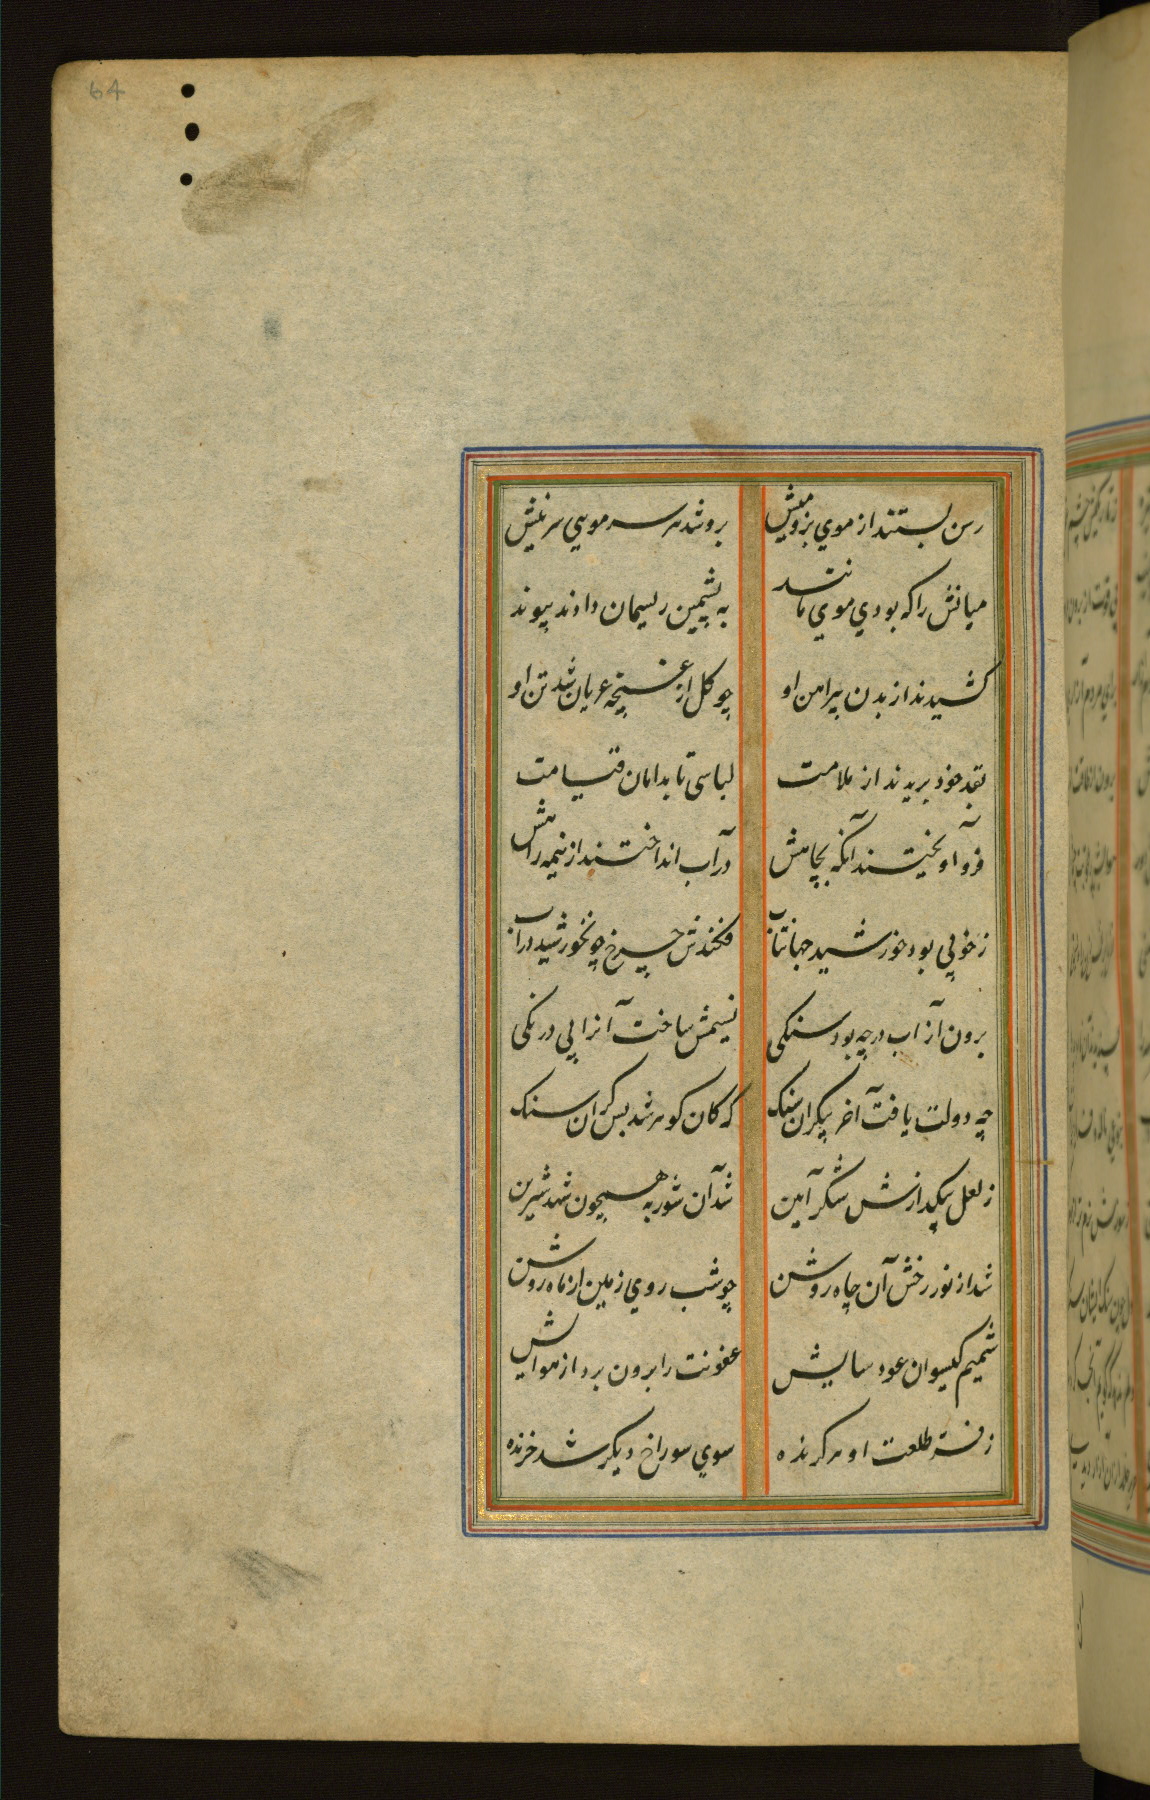 64
رسن بستند از موي بز و ميش    برو شد هر سر مويي سر نيش
ميانش را كه بودي موي مانند    به پشمين ريسمان دادند پيوند
كشيدند از بدن پيراهن او    چو كل از غنچه عريان شد تن او
بقد خود بريدند از ملامت    لباسي تا بدامان قيامت
فرو آويختند آنكه بچاهش    در آب انداختند از نيمه راهش
ز خوبي بود خورشيد جهانتاب    فكندش چرخ چون خورشيد در آب
برون از آب در چه بود سنكي    نشيمن ساخت آنرا بي درنكي
چه دولت يافت آخر بيكران سنك    كه كان كوهر شد بس كران سنك
ز لعل شكر آيين    شد آن شورابه همچون شهد شيرين
شد از نور رخش آن چاه روشن    چو شب روي زمين از ماه روشن
شميم كيسوان عود سايش    عفونت را برون برد از هوايش
ز فر طلعت او هر كزنده    سوي سوراخ ديكر شد خزنده